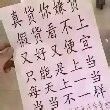 真货你嫌贵
假货看不上
又好又便宜
只能是上当
每天上一当
当当不一样